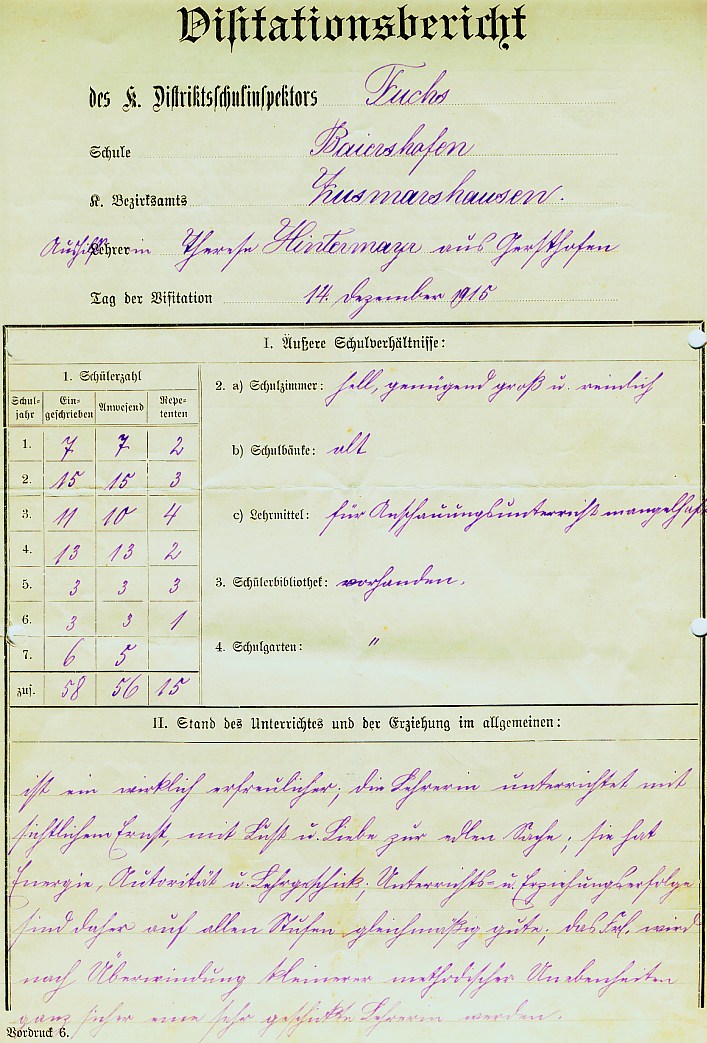 Visitationsbericht
des K. Distriktsschulinspektors Fuchs
Schule Baiershofen
K. Bezirksamts Zusmarshausen.
Aushilfslehrerin Therese Hintermayr aus Gersthofen
Tag der Visitation 14. Dezember 1915
I. Äußere Schulverhältnisse:
1. Schülerzahl
Schul-jahr Ein-geschrieben Anwesend Repe-tenten
1. 7 7 2
2. 15 15 3
3. 11 10 4
4. 13 13 2
5. 3 3 3
6. 3 3 1
7. 6 5
zus. 58 56 15
2. a) Schulzimmer: hell, genügend groß u. reinlich
b) Schulbänke: alt
c) Lehrmittel: für Anschauungsunterricht mangelhaft
3. Schülerbibliothek: vorhanden.
4. Schulgarten: "
II. Stand des Unterrichtes und der Erziehung im allgemeinen:
ist ein wirklich erfreulicher; die Lehrerin unterrichtet mit
sichtlichem Ernst, mit Lust u. Liebe zur edlen Sache; sie hat
Energie, Autorität u. Lehrgeschick; Unterrichts= u. Erziehungserfolge
sind daher auf allen Stufen gleichmäßig gute; das Frl. wird
nach Überwindung kleinerer methodischer Unebenheiten
ganz sicher eine sehr geschickte Lehrerin werden.
Vordruck 6.